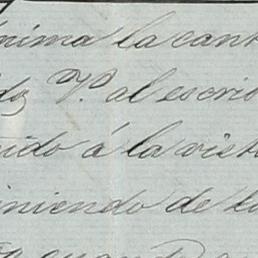 nima la cant
do, V. al escrib
ido á la vist
niendo de la